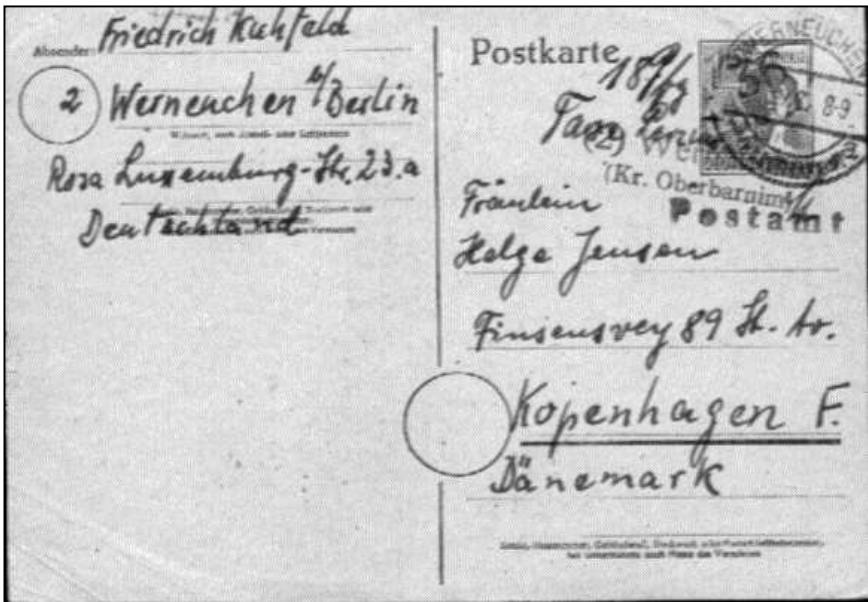 Absender: Friedrich Kuhfeld
2 Werneuchen b/Berlin
Wohnort, auch Zustell- oder Leitpostamt
Rosa Luxemburg-Str. 23.a
Deutschland
Postkarte
WERNEUCHEN
8-9
(2)
(Kr. Oberbarnim)
Postamt
Fräulein
Helga Jensen
Finsensvey 89 St. tv.
Kopenhagen F.
Dänemark
Straße, Hausnummer, Gebäudeteil, Stockwerk oder Postschließfachnummer;
bei Untermietern auch Name des Vermieters